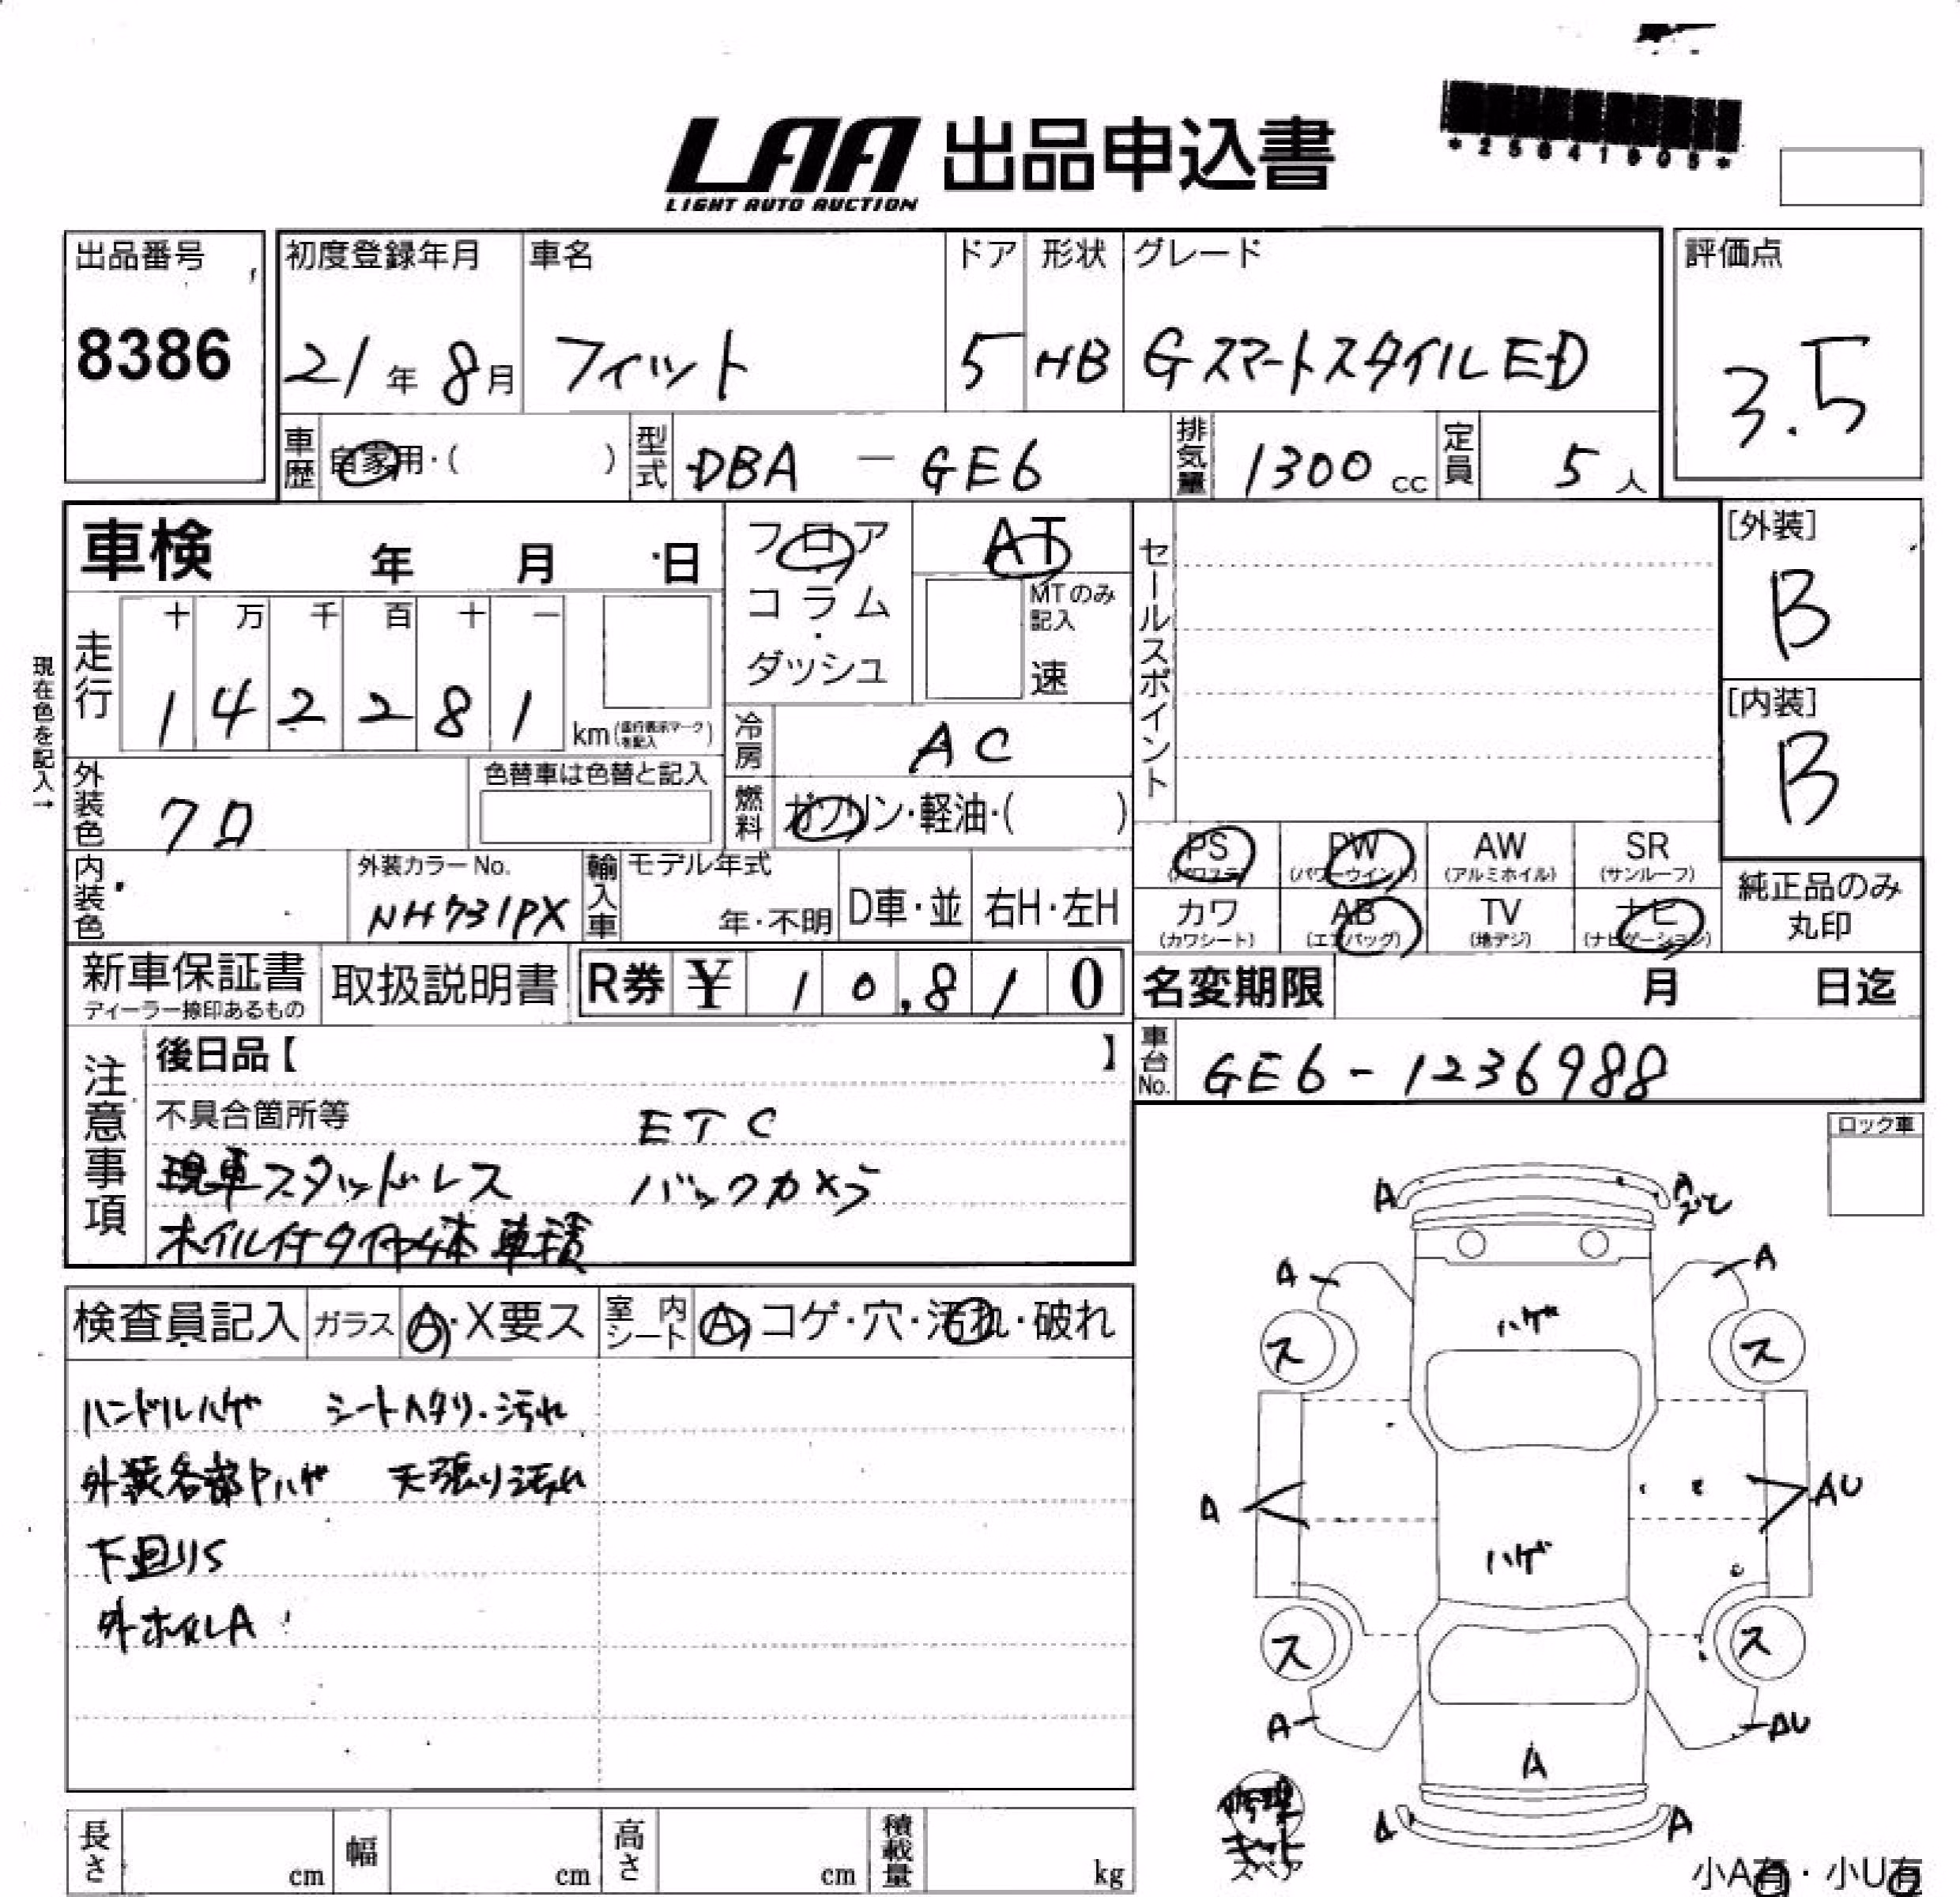 LAA 出品申込書
LIGHT AUTO AUCTION
出品番号
8386
初度登録年月
21年8月
車名
フィット
ドア
5
形状
HB
グレード
GスマートスタイルED
評価点
3.5
車歴
自家用・( )
型式
DBA - GE6
排気量
1300cc
定員
5人
車検 年 月 日
フロア
コラム
・
ダッシュ
AT
MTのみ
記入
速
セールスポイント
[外装]
B
[内装]
B
現在色を記入→
走行
十 万 千 百 十 一
1 4 2 2 8 1
km
冷房
AC
外装色
クロ
色替車は色替と記入
燃料
ガソリン・軽油・( )
内装色
外装カラーNo.
NH731PX
輸入車
モデル年式
年・不明
D車・並
右H・左H
PS
(パワステ)
PW
(パワーウインド)
AW
(アルミホイル)
SR
(サンルーフ)
カワ
(カワシート)
AB
(エアバッグ)
TV
(地デジ)
ナビ
(ナビゲーション)
純正品のみ
丸印
新車保証書
ディーラー捺印あるもの
取扱説明書
R券 ¥ 10,810
名変期限 月 日迄
車台No.
GE6-1236988
注意事項
後日品【 】
不具合箇所等 ETC
現車スタッドレス バックカメラ
ホイル付タイヤ4本車積
ロック車
検査員記入
ガラス
A・X要ス
室内シート
A コゲ・穴・汚れ・破れ
ハンドルハゲ シートヘタリ・汚れ
外装各部Pハゲ 天張り汚れ
下回りS
外ホイルA
A
A
A
A
ハゲ
ス
ス
A
AU
ハゲ
ス
ス
A
AU
A
A
A
修理
キット
スペア
小A有・小U有
長さ cm
幅 cm
高さ cm
積載量 kg